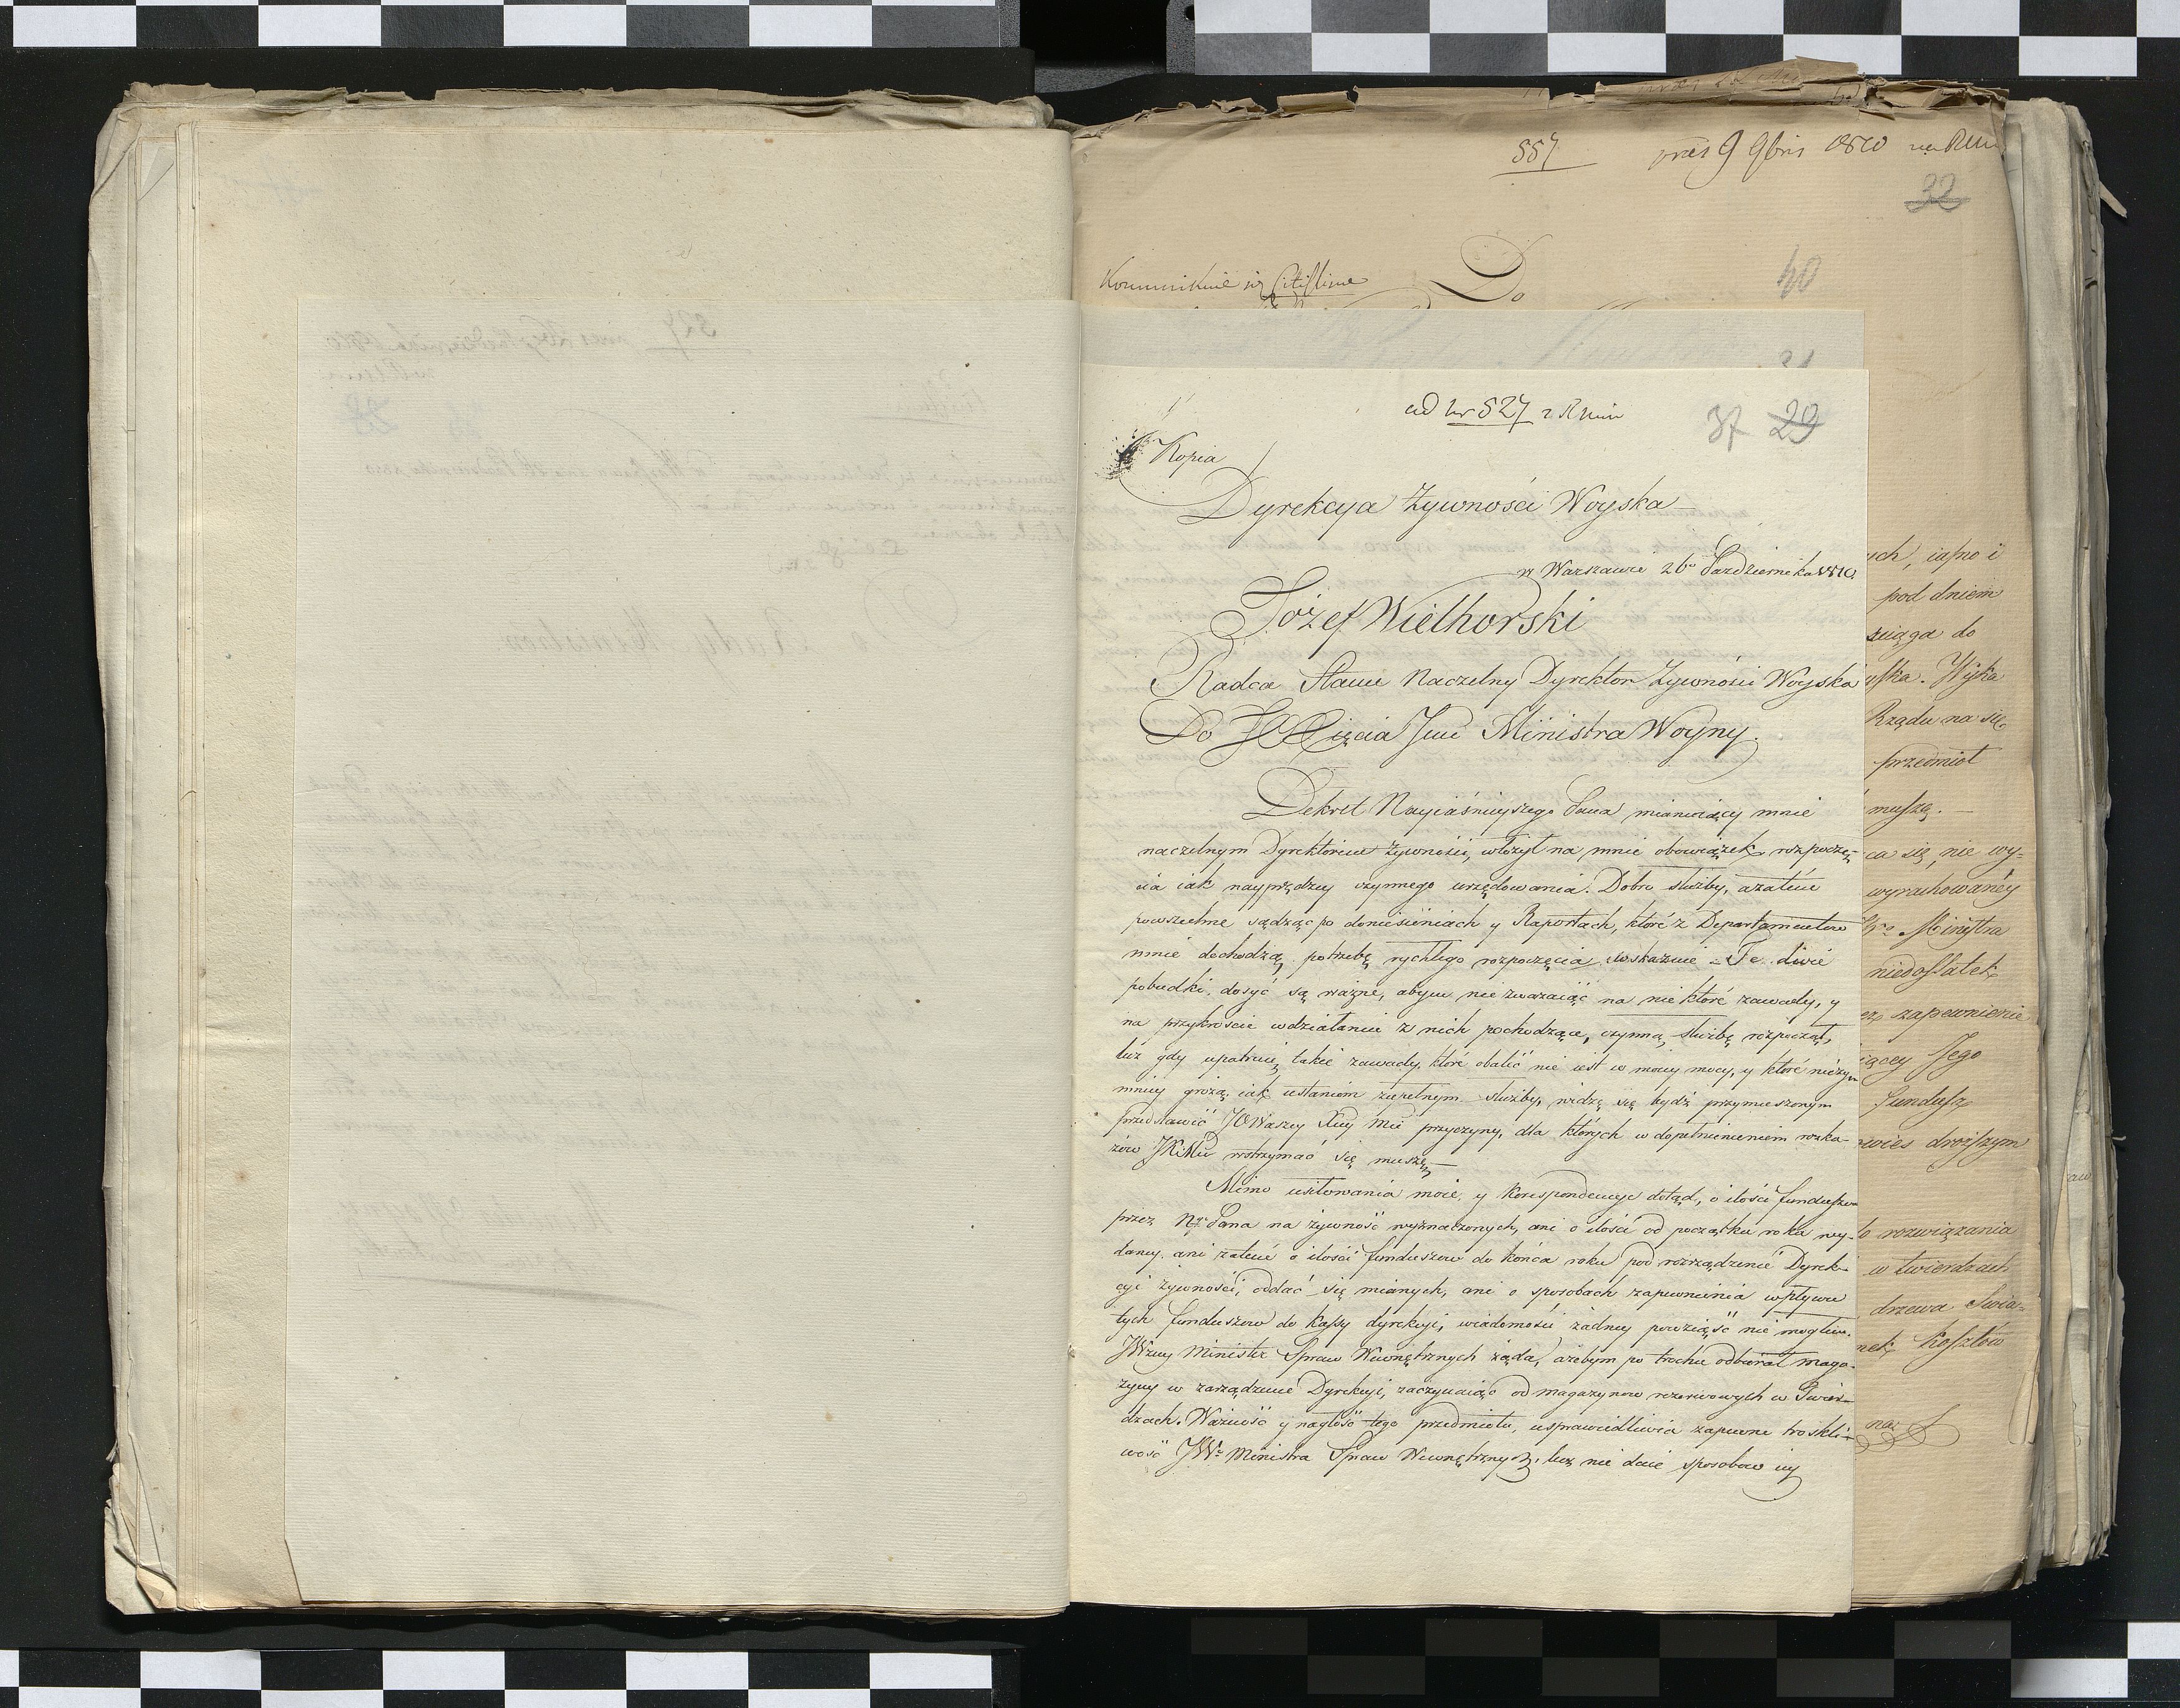 557 pres 9 9bris 1810
32
40
Do
31
ad Nr 527 z R min
37 29
Kopia
Dyrekcya Żywnośći Woyska
w Warszawie 26º Pazdziernika 1810.
Józef Wielhorski
Radca Stanu Naczelny Dyrektor Żywnośći Woyska
Do JO Xięcia Jmci Ministra Woyny.
Dekret Nayiaśnieyszego Pana mianuiący mnie
naczelnym Dyrektorem żywnośći, włożył na mnie obowiązek rozpoczę-
cia iak nayprędzey czynnego urzędowania. Dobro służby, a zatem
powszechne sądząc po doniesieniach y Raportach, które z Departamentow
mnie dochodzą, potrzebę rychłego rozpoczęcia wskazuie. Te dwie
pobudki, dosyć są ważne, abym nie zważaiąc na niektóre zawady, y
na przykrośćie w działaniu z nich pochodzące, czynną służbę rozpoczął,
lecz gdy upatruię takie zawady, które obalić nie iest w moiey mocy, y które nieży
mniey grożą, iak ustaniem zupełnym służby, widzę się bydź przymuszonym
przedstawić JO Waszey Xcey Mci przyczyny, dla których w dopełnieniem rozka-
zów JKMci wstrzymać się muszę.
Mimo usiłowania moie, y korespondencye dotąd, o ilośći funduszow
przez Ngo Pana na żywność wyznaczonych, ani o ilośći od początku roku wy-
daney, ani zatem o ilośći funduszow do końca roku pod rozrządzenie Dyrek-
cyi żywnośći, oddać się mianych, ani o sposobach zapewnienia wpływu
tych funduszow do kassy dyrekcyi, wiadomośći żadney powziąść nie mogłem.
JWzny Minister Spraw Wewnętrznych żąda, ażebym po trochu odbierał maga-
zyny w zarządzenie Dyrekcyi, zaczynaiąc od magazynow rezerwowych w Twier-
dzach. Ważność y nagłość tego przedmiotu, usprawiedliwia zapewne troskli-
wość JWº Ministra Spraw Wewnętrznych, lecz nie daie sposobow iey
ych, iasno i
pod dniem
sciąga do
Rządu na się
przedmiot
muszą.
ca się, nie wy-
wyrachowaney
Ministra
niedostatek
zapewnienie
iącey Jego
Fundusz
droższym
rozwiązania
w twierdzach
drzewa
kosztów